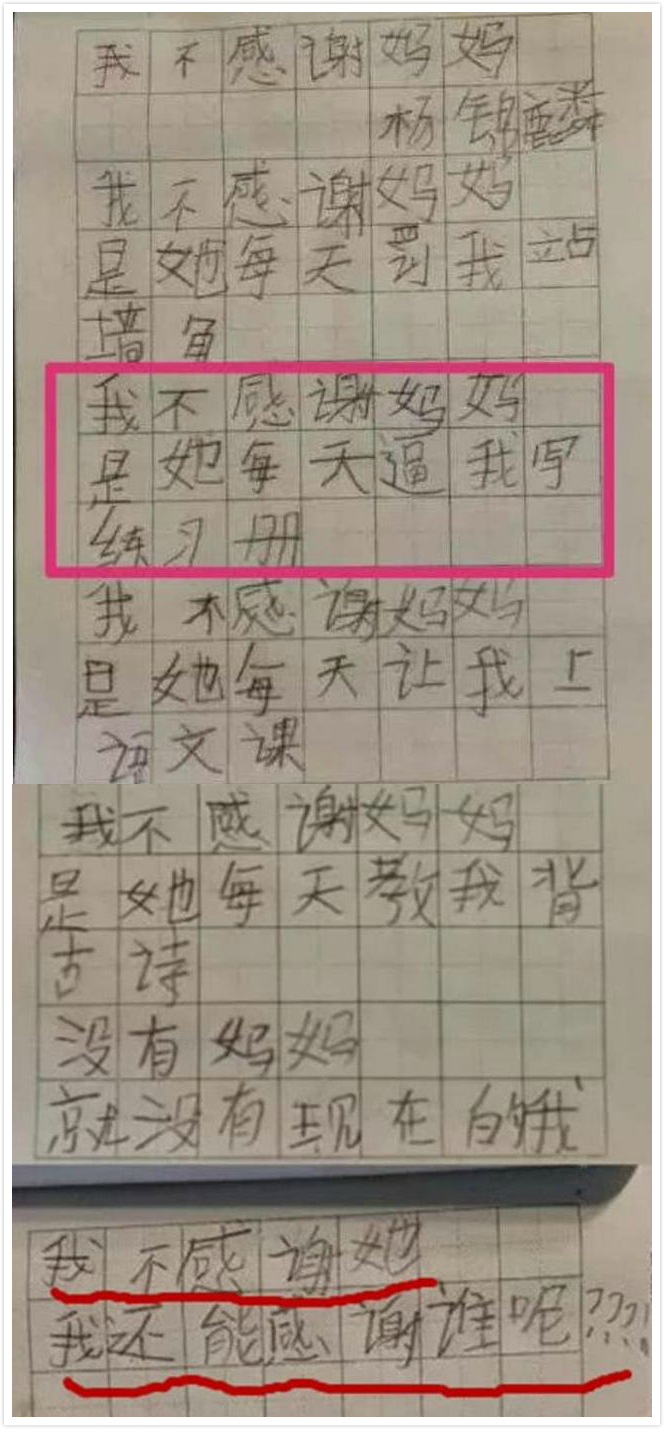 我不感谢妈妈
杨锦麟
我不感谢妈妈
是她每天罚我站
墙角
我不感谢妈妈
是她每天逼我写
练习册
我不感谢妈妈
是她每天让我上
语文课
我不感谢妈妈
是她每天教我背
古诗
没有妈妈
就没有现在的我
我不感谢她
我还能感谢谁呢????